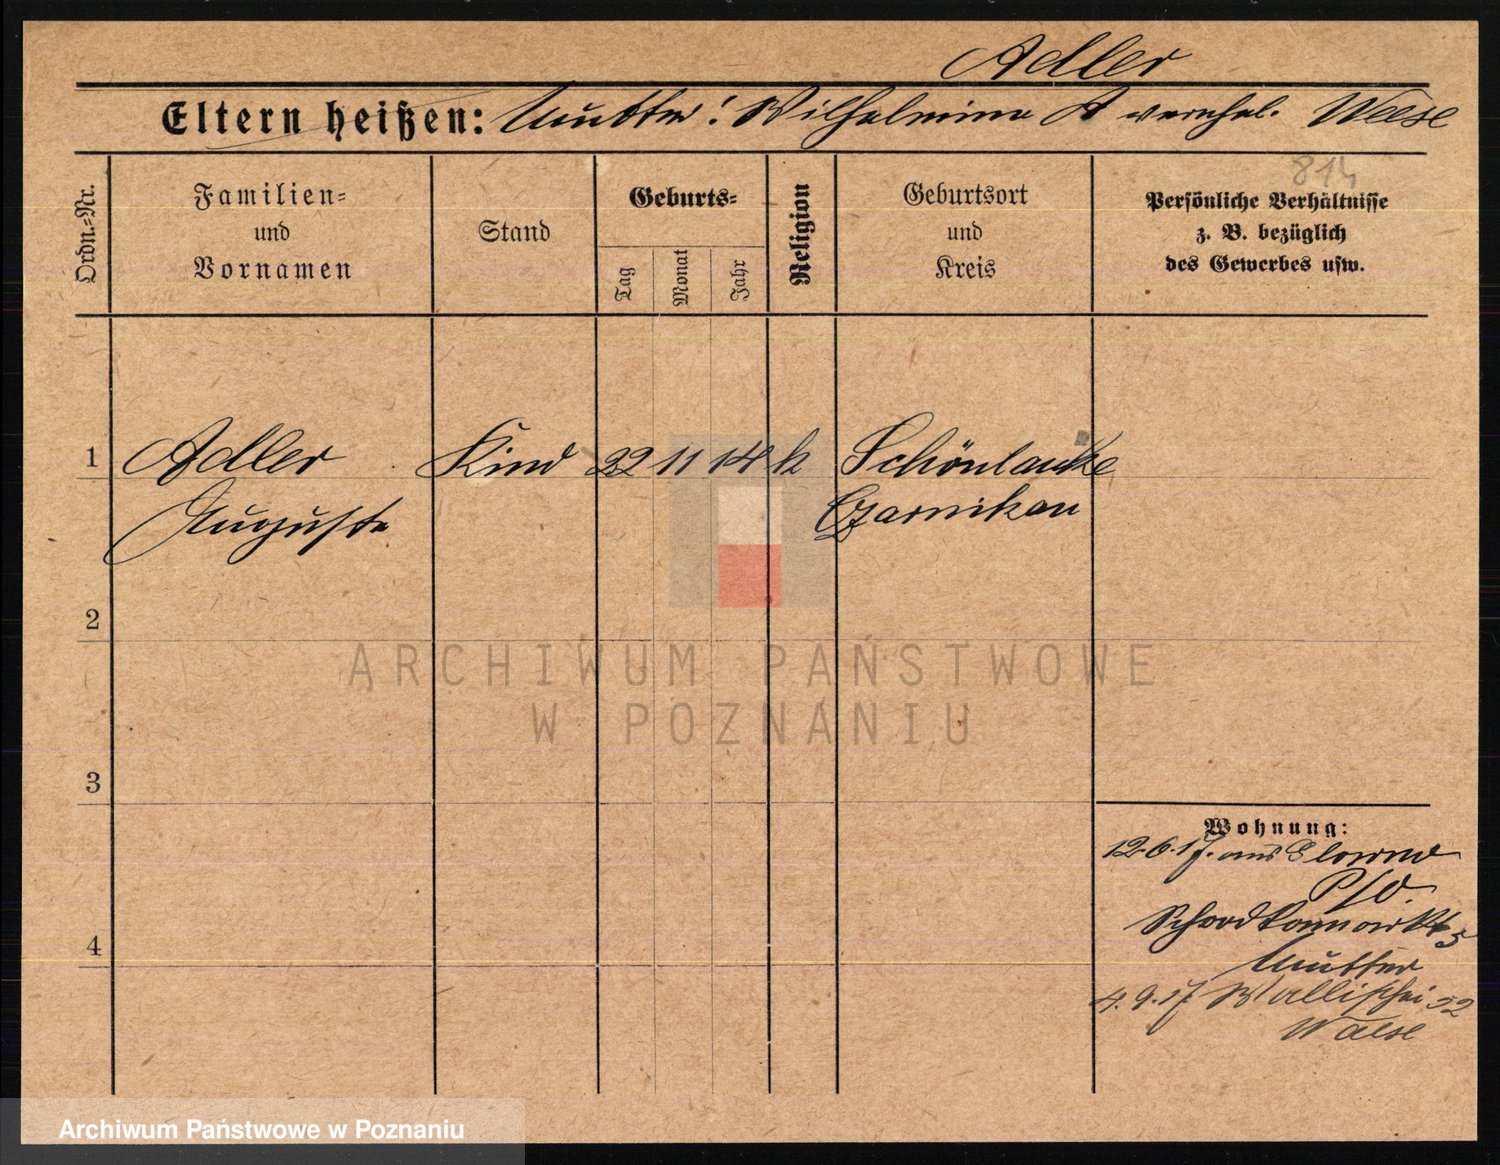 Adler
Eltern heißen: Mutter: Wilhelmine A verehel. Weese
814
Ordn.-Nr.
Familien- und Vornamen
Stand
Geburts-
Tag
Monat
Jahr
Religion
Geburtsort und Kreis
Persönliche Verhältnisse
z. B. bezüglich
des Gewerbes usw.
1 Adler Kind 22 11 14 k Schönlanke
Auguste Czarnikau
2
3
4
Wohnung:
12.6.17. aus Glowno
P/O.
5
Mutter
4.9.17 Wallischei 52
Waese
ARCHIWUM PAŃSTWOWE
W POZNANIU
Archiwum Państwowe w Poznaniu